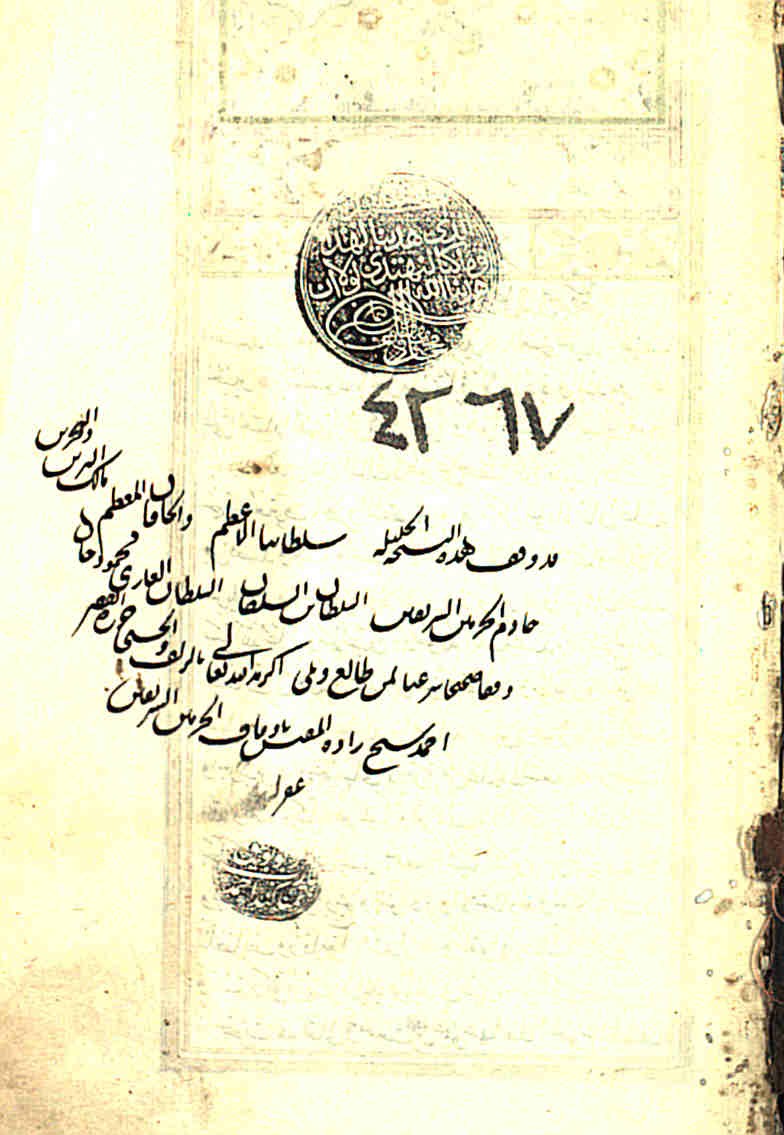 الحمد لله الذي هدينا لهذا
وما كنا لنهتدي لولا ان
هدينا الله
٤٢٦٧
قد وقف هذه النسخة الجليلة سلطاننا الاعظم والخاقان المعظم مالك البرين والبحرين
خادم الحرمين الشريفين السلطان بن السلطان السلطان الغازي محمود خان
وقفا صحيحا شرعيا لمن طالع وملي اكرمه الله تعالى بالزلفى والحسنى حرره الفقير
احمد شيخ زاده المفتش باوقاف الحرمين الشريفين
غفر له